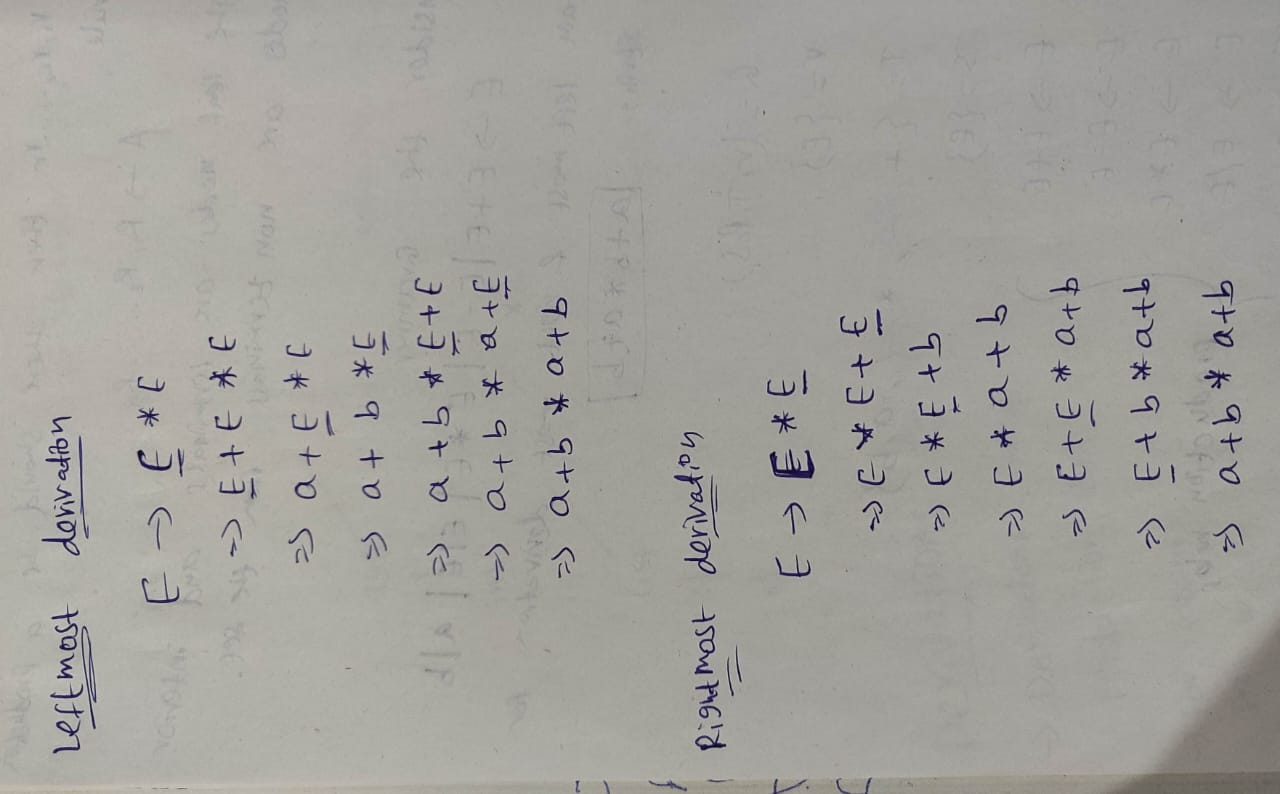 Leftmost derivation
E → E * E
⇒ E + E * E
⇒ a + E * E
⇒ a + b * E
⇒ a + b * E + E
⇒ a + b * a + E
⇒ a + b * a + b
Rightmost derivation
E → E * E
⇒ E * E + E
⇒ E * E + b
⇒ E * a + b
⇒ E + E * a + b
⇒ E + b * a + b
⇒ a + b * a + b